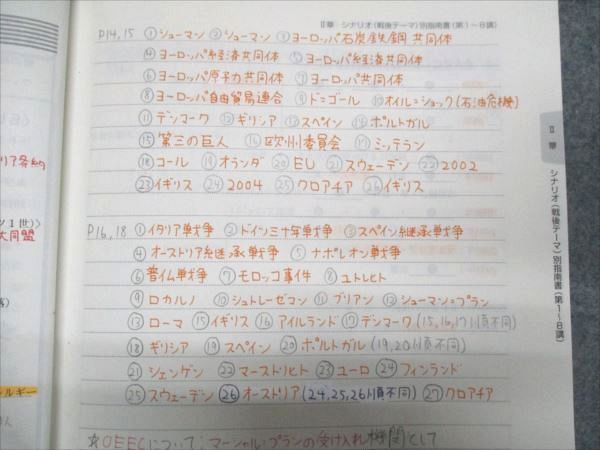 II章 シナリオ(戦後テーマ)別指南書(第1〜8講)
P14,15 ①シューマン ②シューマン ③ヨーロッパ石炭鉄鋼共同体
④ヨーロッパ経済共同体 ⑤ヨーロッパ経済共同体
⑥ヨーロッパ原子力共同体 ⑦ヨーロッパ共同体
⑧ヨーロッパ自由貿易連合 ⑨ド=ゴール ⑩オイル=ショック(石油危機)
⑪デンマーク ⑫ギリシア ⑬スペイン ⑭ポルトガル
⑮第三の巨人 ⑯欧州委員会 ⑰ミッテラン
⑱コール ⑲オランダ ⑳EU ㉑スウェーデン ㉒2002
㉓イギリス ㉔2004 ㉕クロアチア ㉖イギリス
P16,18 ①イタリア戦争 ②ドイツ三十年戦争 ③スペイン継承戦争
④オーストリア継承戦争 ⑤ナポレオン戦争
⑥普仏戦争 ⑦モロッコ事件 ⑧ユトレヒト
⑨ロカルノ ⑩シュトレーゼマン ⑪ブリアン ⑫シューマン=プラン
⑬ローマ ⑮イギリス ⑯アイルランド ⑰デンマーク(15,16,17順不同)
⑱ギリシア ⑲スペイン ⑳ポルトガル(19,20順不同)
㉑シェンゲン ㉒マーストリヒト ㉓ユーロ ㉔フィンランド
㉕スウェーデン ㉖オーストリア(24,25,26順不同) ㉗クロアチア
☆OEECについて:マーシャル=プランの受け入れ機関として
II章
シナリオ(戦後テーマ)別指南書(第1〜8講)
リア条約
ツ1世)
大同盟
ルギー